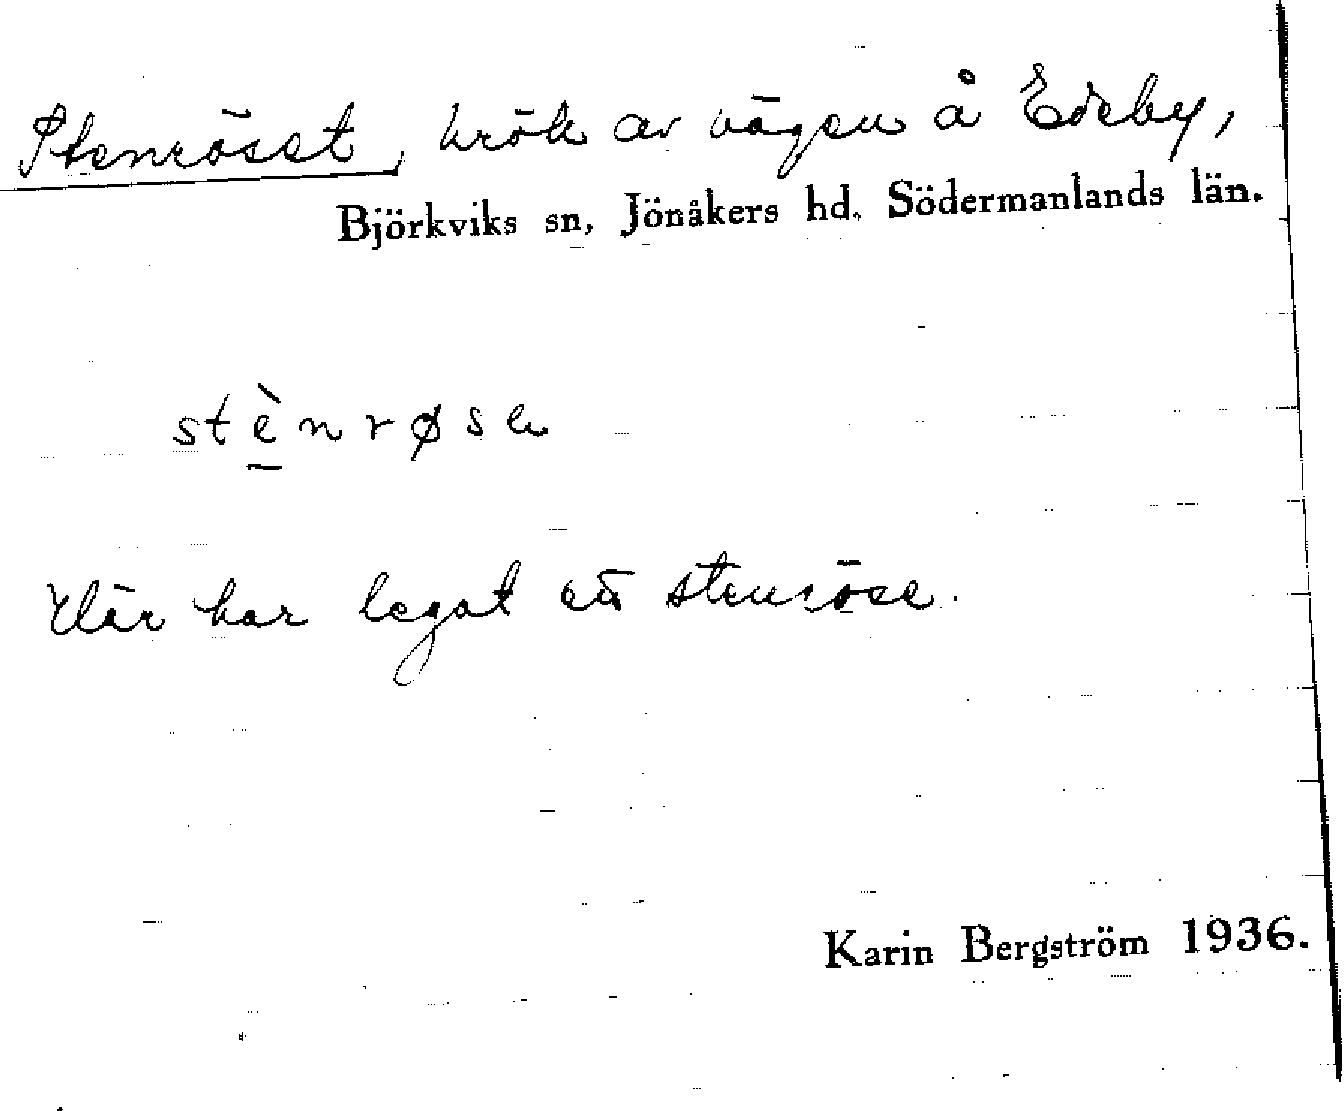 Stenröset, krök av vägen å Edeby,
Björkviks sn, Jönåkers hd. Södermanlands län.
stè̱nrøse
Här har legat ett stenröse.
Karin Bergström 1936.